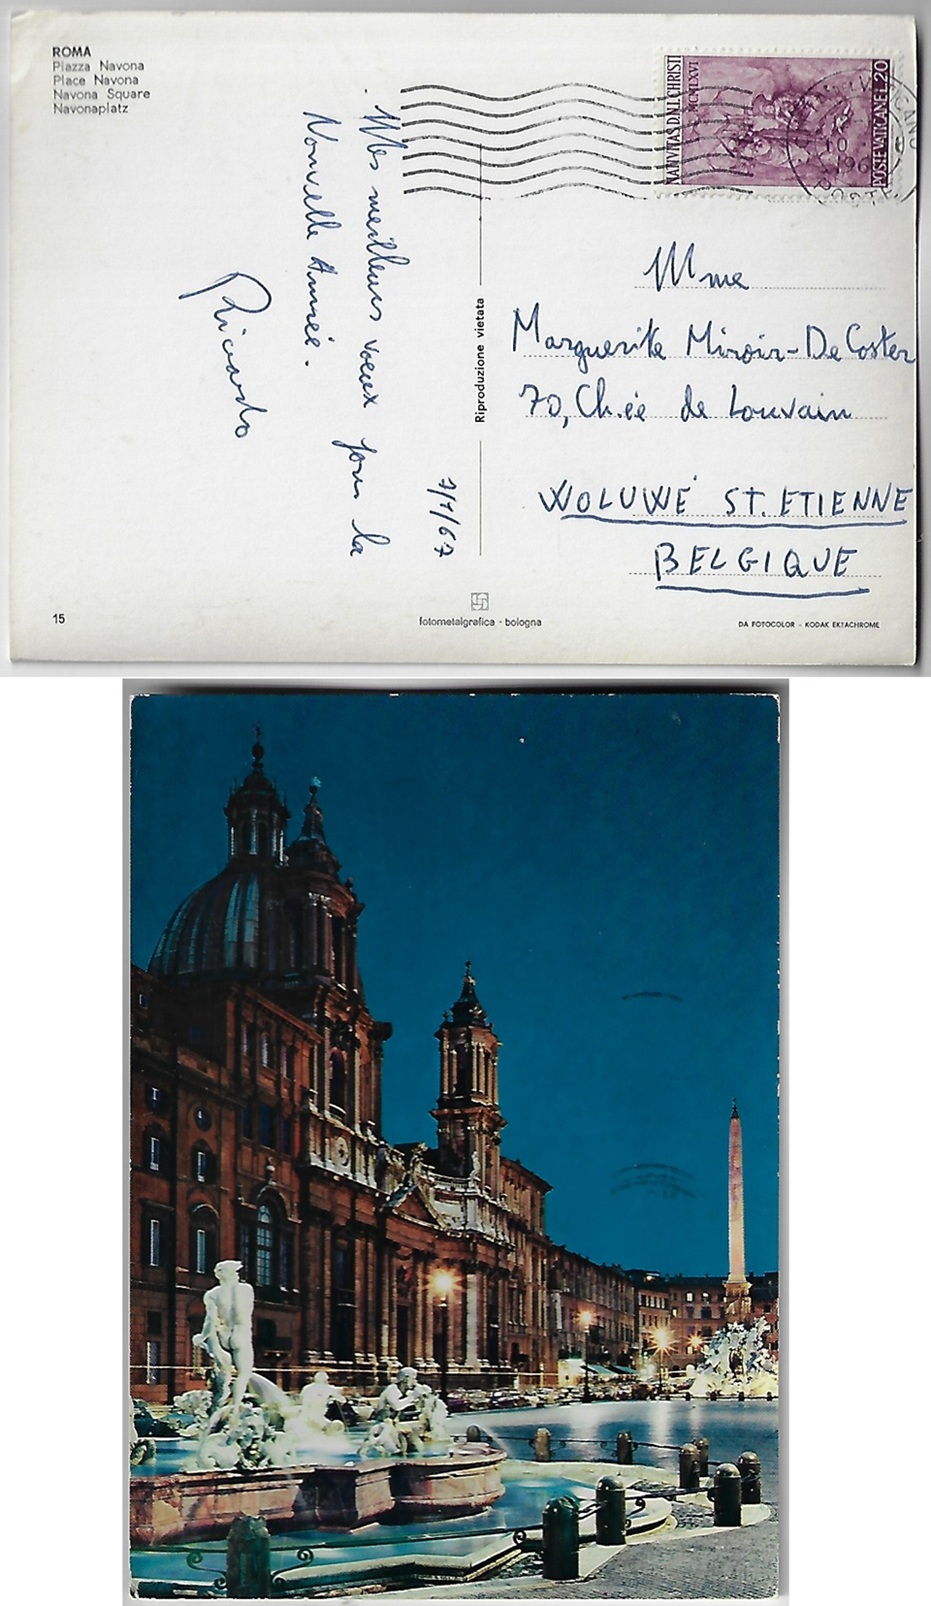 ROMA
Piazza Navona
Place Navona
Navona Square
Navonaplatz
NATIVITAS D.N.I. CHRISTI
MCMLXVI
POSTE VATICANE L 20
Mes meilleurs voeux pour la
Nouvelle Année.
Riccardo
7/1/67
Riproduzione vietata
Mme
Marguerite Miroir-De Coster
70, Ch.ée de Louvain
WOLUWÉ ST. ETIENNE
BELGIQUE
15
fotometalgrafica - bologna
DA FOTOCOLOR - KODAK EKTACHROME